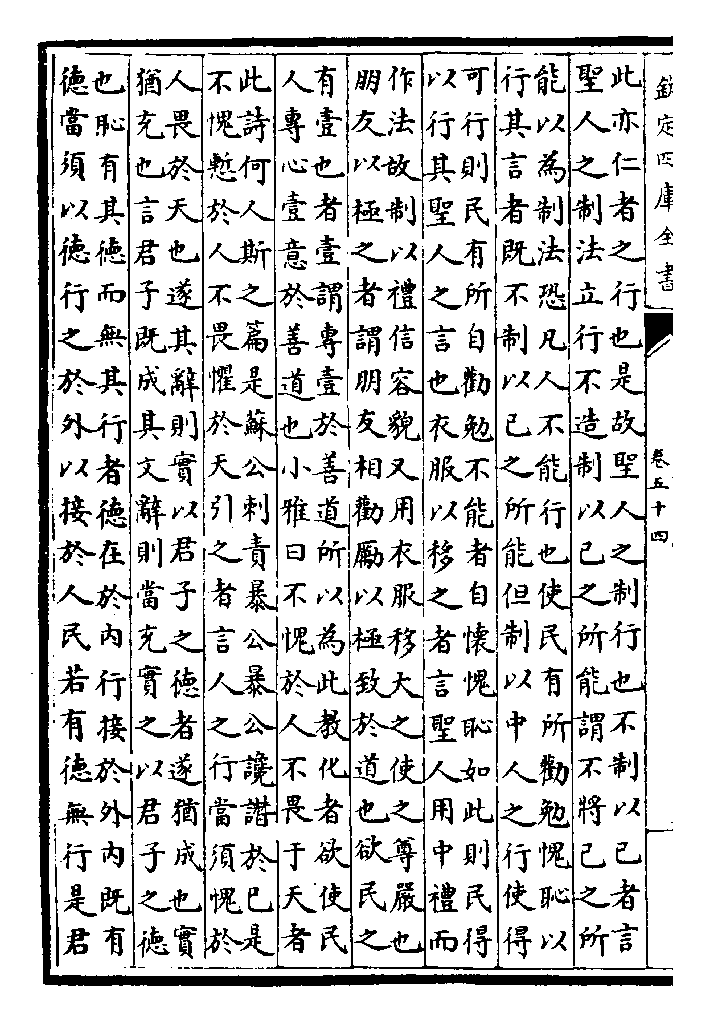 欽定四庫全書
卷五十四
此亦仁者之行也是故聖人之制行也不制以已者言
聖人之制法立行不造制以已之所能謂不將已之所
能以為制法恐凡人不能行也使民有所勸勉愧恥以
行其言者既不制以已之所能但制以中人之行使得
可行則民有所自勸勉不能者自懷愧恥如此則民得
以行其聖人之言也衣服以移之者言聖人用中禮而
作法故制以禮信容貌又用衣服移大之使之尊嚴也
朋友以極之者謂朋友相勸勵以極致於道也欲民之
有壹也者壹謂專壹於善道所以為此教化者欲使民
人專心壹意於善道也小雅曰不愧於人不畏于天者
此詩何人斯之篇是蘇公刺責暴公暴公讒譖於已是
不愧慙於人不畏懼於天引之者言人之行當須愧於
人畏於天也遂其辭則實以君子之德者遂猶成也實
猶充也言君子既成其文辭則當充實之以君子之德
也恥有其德而無其行者德在於內行接於外內既有
德當須以德行之於外以接於人民若有德無行是君